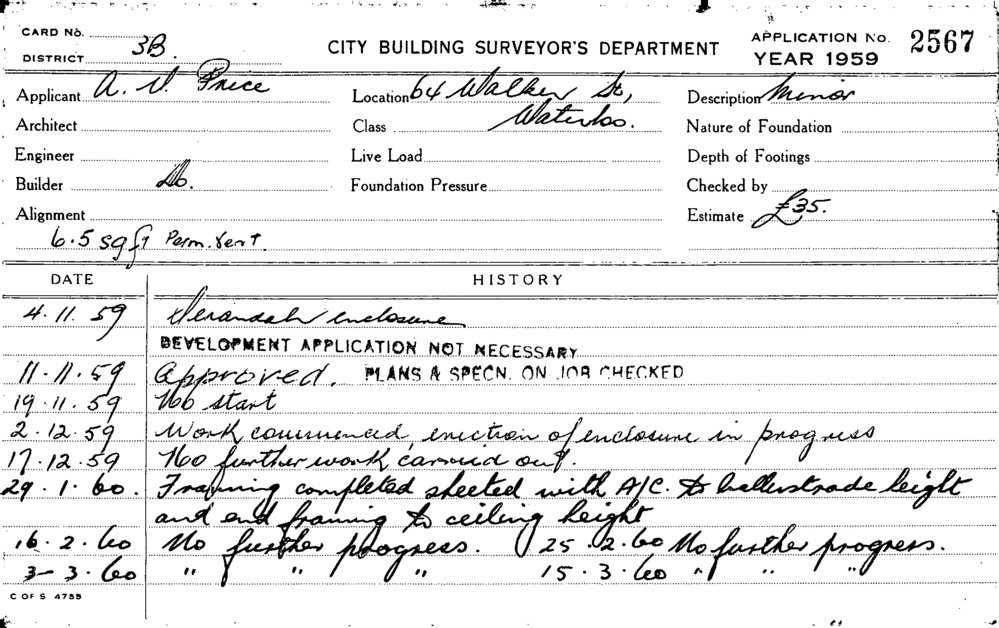 CARD No.
DISTRICT 3B.
CITY BUILDING SURVEYOR'S DEPARTMENT
APPLICATION No. 2567
YEAR 1959
Applicant A. V. Price
Location 64 Walker St,
Description Minor
Architect
Class Waterloo.
Nature of Foundation
Engineer
Live Load
Depth of Footings
Builder Do.
Foundation Pressure
Checked by
Alignment
Estimate £35.
6.5 sq ft Perm. Vent.
DATE HISTORY
4.11.59 Verandah enclosure
DEVELOPMENT APPLICATION NOT NECESSARY
11.11.59 Approved. PLANS & SPECN. ON JOB CHECKED
19.11.59 No start
2.12.59 Work commenced, erection of enclosure in progress
17.12.59 No further work carried out.
29.1.60. Framing completed sheeted with A/C. to ballustrade height
and end framing to ceiling height
16.2.60 No further progress. 25.2.60 No further progress.
3-3.60 " " " 15.3.60 " " "
C OF S 4755